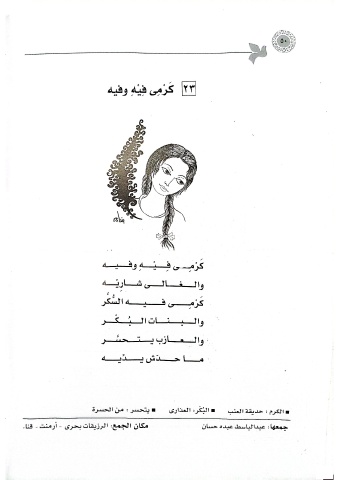 ٥٠
٢٣ كَرْمى فِيْهْ وفيه
كَرْمِــى فِـيْـهْ وفـيـه
والـغـالـى شـاريْـه
كَرْمِـى فـيـه السُّكَّر
والـبـنـات الـبُـكَـر
والـعـازب يـتـحـسَّـر
مـا حـدش يـدّيـه
■ الكرم: حديقة العنب ■ البُكَر: العذارى ■ يتحسر: من الحسرة
جمعها: عبدالباسط عبده حسان مكان الجمع: الرزيقات بحرى - أرمنت - قنا.